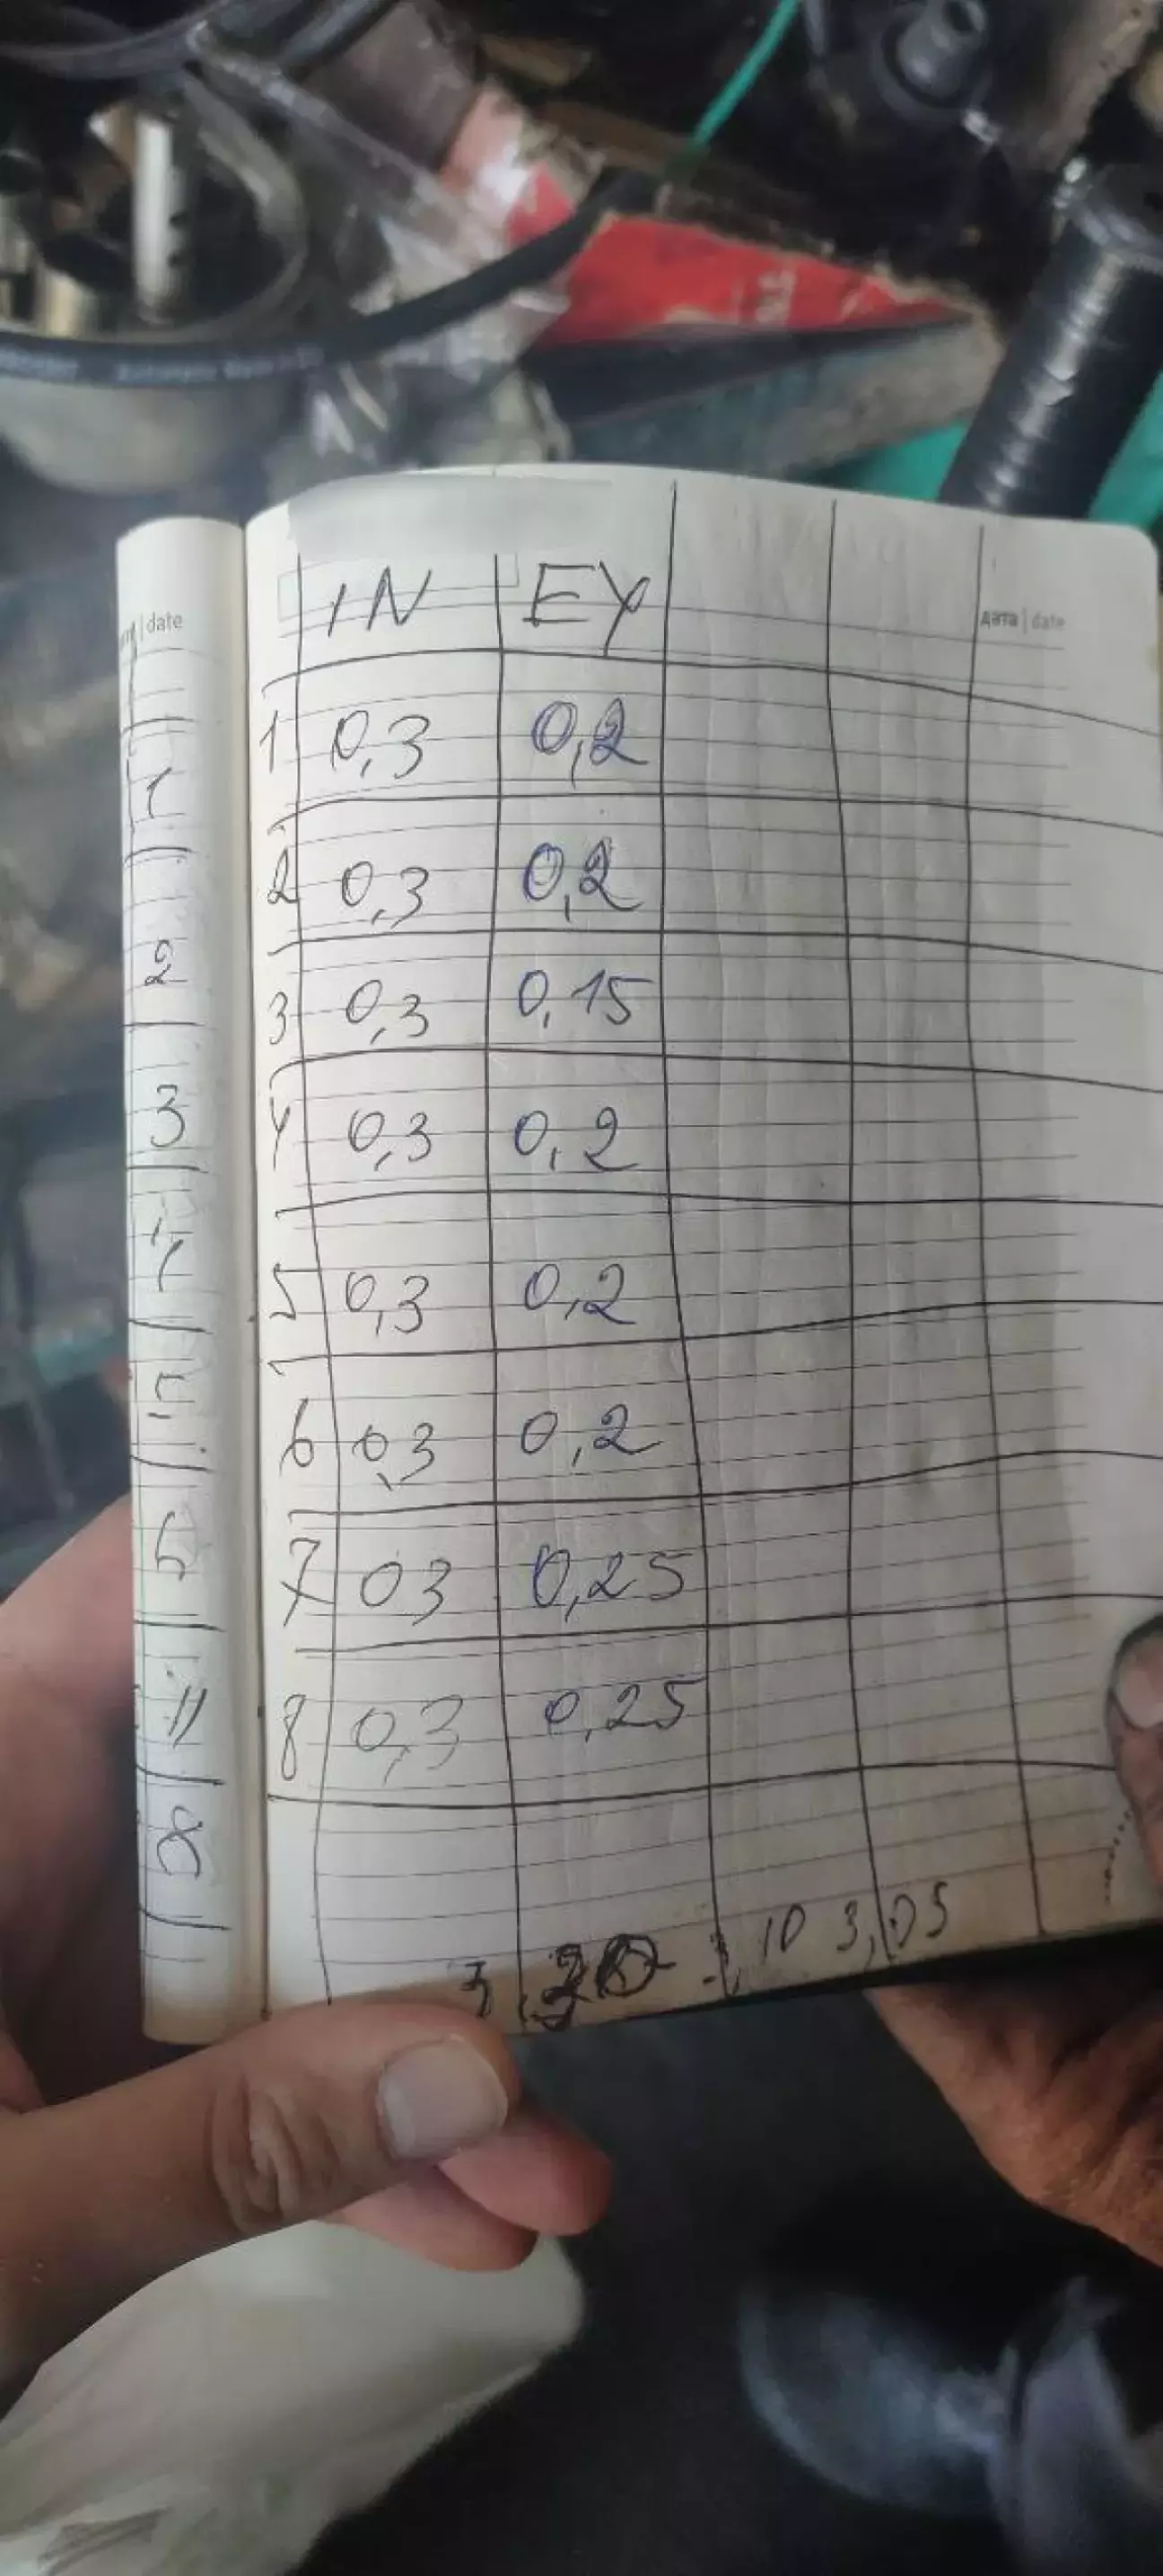 IN EY
дата | date
date
1 0,3 0,2
2 0,3 0,2
3 0,3 0,15
4 0,3 0,2
5 0,3 0,2
6 0,3 0,2
7 03 0,25
8 0,3 0,25
10 3,05
1
2
3
4
5
6
8